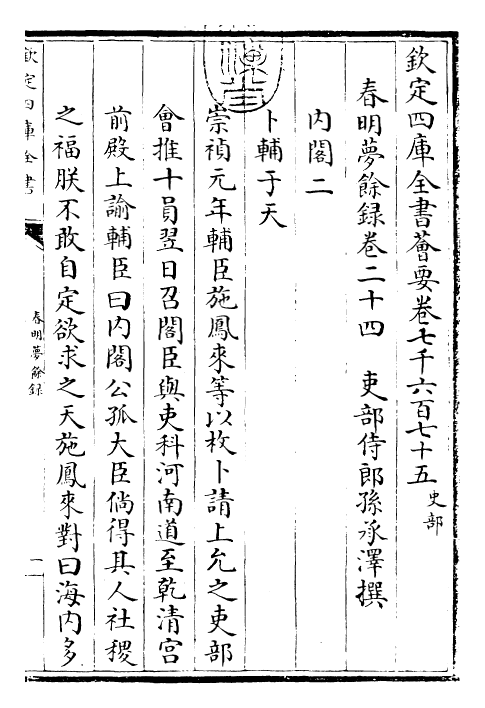 欽定四庫全書薈要卷七千六百七十五 史部
春明夢餘録卷二十四 吏部侍郎孫承澤撰
内閣二
卜輔于天
崇禎元年輔臣施鳳來等以枚卜請上允之吏部
會推十員翌日召閣臣與吏科河南道至乾清宮
前殿上諭輔臣曰内閣公孤大臣倘得其人社稷
之福朕不敢自定欲求之天施鳳來對曰海内多
欽定四庫全書
春明夢餘録
一